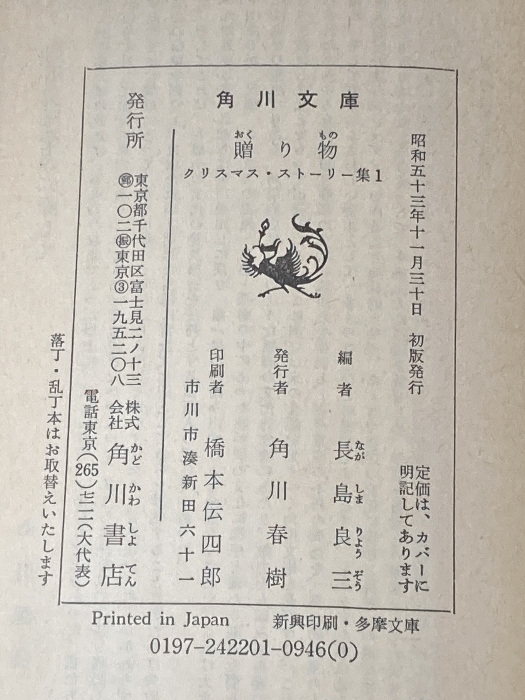 角川文庫
贈り物
おく もの
クリスマス・ストーリー集1
昭和五十三年十一月三十日 初版発行
定価は、カバーに
明記してあります
編者 長島良三
なが しま りょう ぞう
発行者 角川春樹
印刷者 橋本伝四郎
市川市湊新田六十一
発行所
東京都千代田区富士見二ノ十三
㊞一〇二 振東京③一九五二〇八
株式
会社
角川書店
かど かわ しょ てん
電話東京(265)七一一一(大代表)
落丁・乱丁本はお取替えいたします
Printed in Japan 新興印刷・多摩文庫
0197-242201-0946(0)